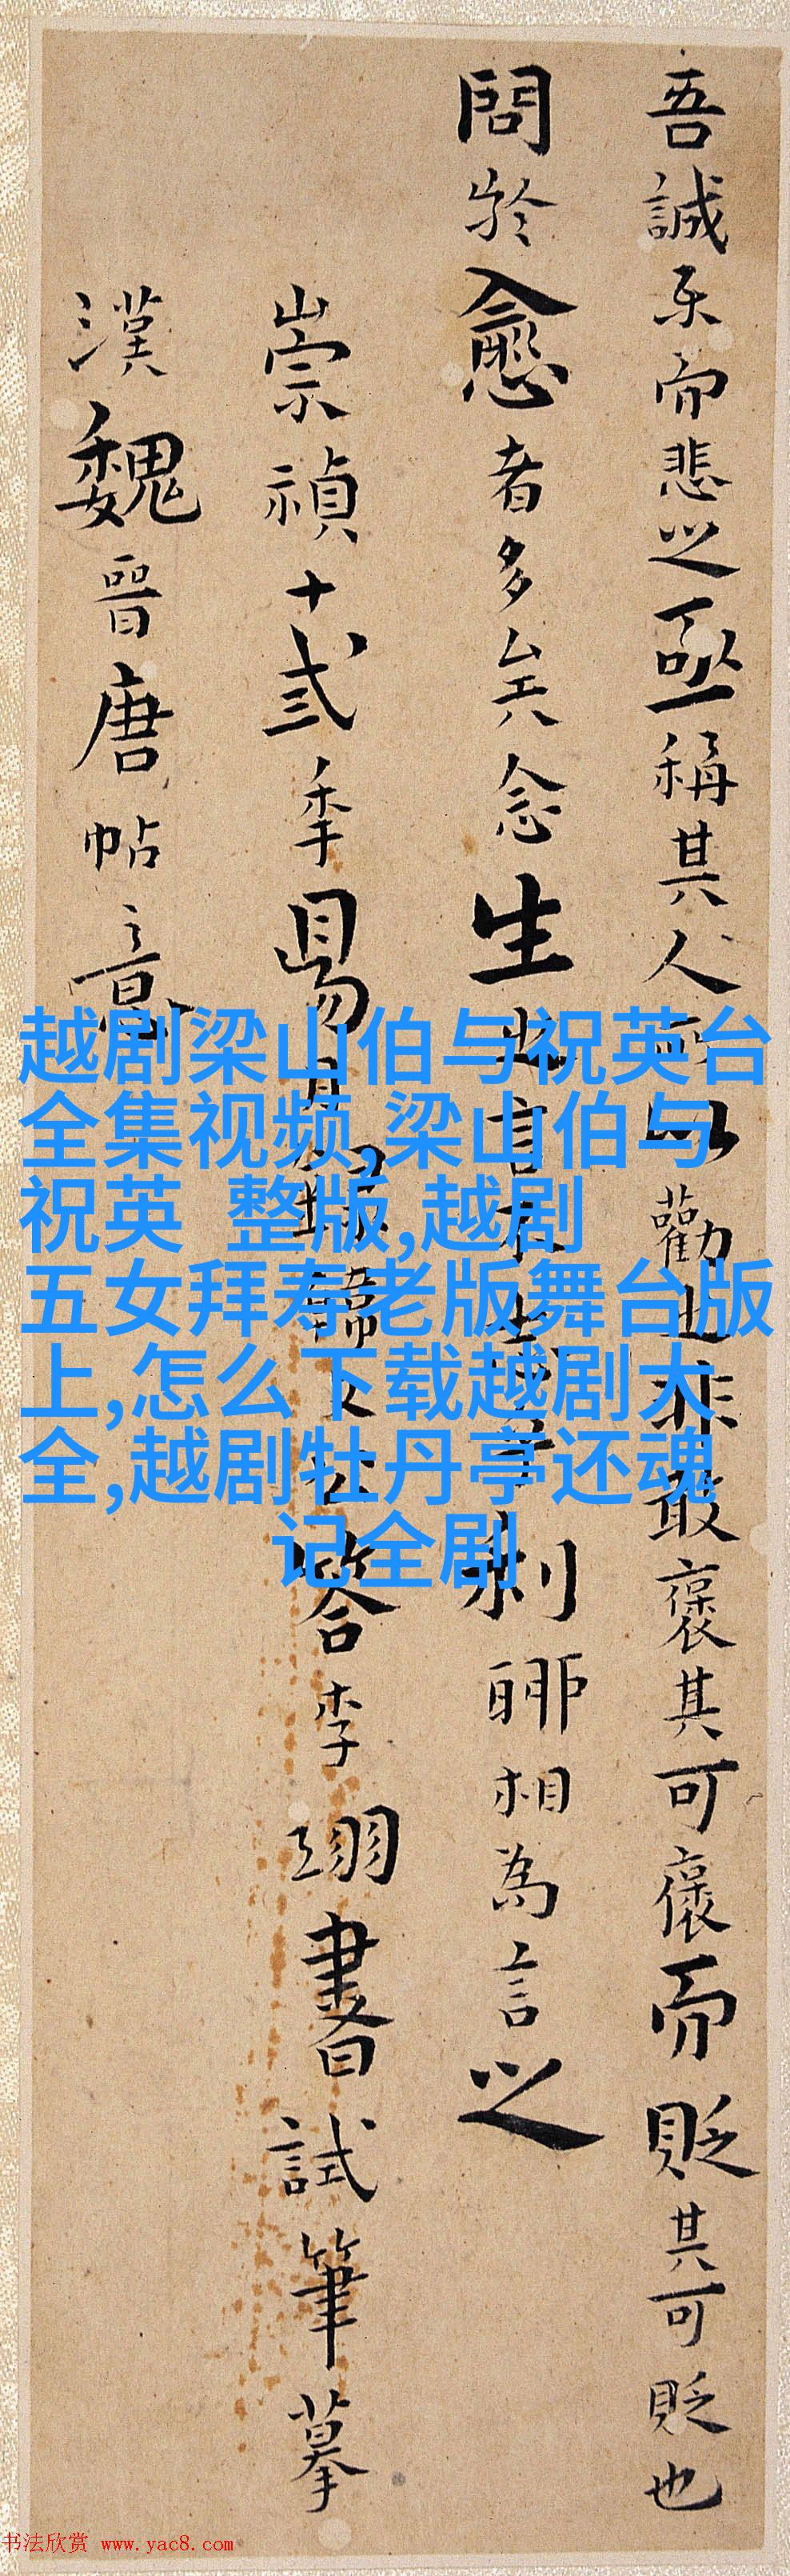 吾誠樂而悲之亟稱其人所以勸之非敢褒其可褒而貶其可貶也
問於愈者多矣念生之言不志乎利聊相為言之
崇禎十弎季昜月韓文公答李翊書試筆摹
漢魏晉唐帖意
越剧梁山伯与祝英台
全集视频,梁山伯与
祝英 整版,越剧
五女拜寿老版舞台版
上,怎么下载越剧大
全,越剧牡丹亭还魂
记全剧
书法欣赏 www.yac8.com